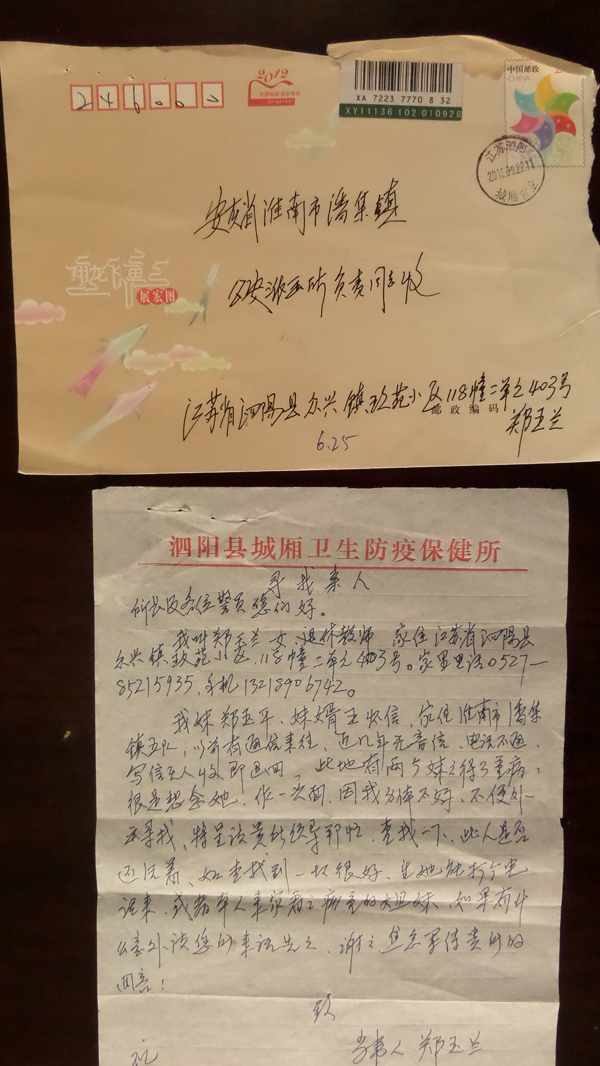 246000
2012
XA 7223 7770 8 32
XY11136 102 010928
中国邮政
CHINA
江苏泗阳
安徽省淮南市潘集镇
公安派出所负责同志收
展宏图
江苏省泗阳县众兴镇玖苑小区118幢二单元403号
邮政编码
郑玉兰
6.25
泗阳县城厢卫生防疫保健所
寻找亲人
所长及各位警员您们好。
我叫郑玉兰 女、退休教师 家住江苏省泗阳县
众兴镇玖苑小区,118幢二单元403号。家里电话0527-
85215935,手机13218906742。
我妹郑玉平、妹婿王怀信,家住淮南市潘集
镇五队,以前有通信来往,近几年无音信、电话不通、
写信无人收即退回,此地有两个妹子得了重病,
很是想念她,作一次面,因我身体不好、不便外
来寻找、特呈请贵所领导帮忙,查找一下,此人是否
还活着、如查找到一切很好、望她能打个电
话来,或带人来家看之病重的姐妹,如果有什
么意外请您的来话告之、谢之,焦急等待贵所的
回音!
致
礼
当事人 郑玉兰